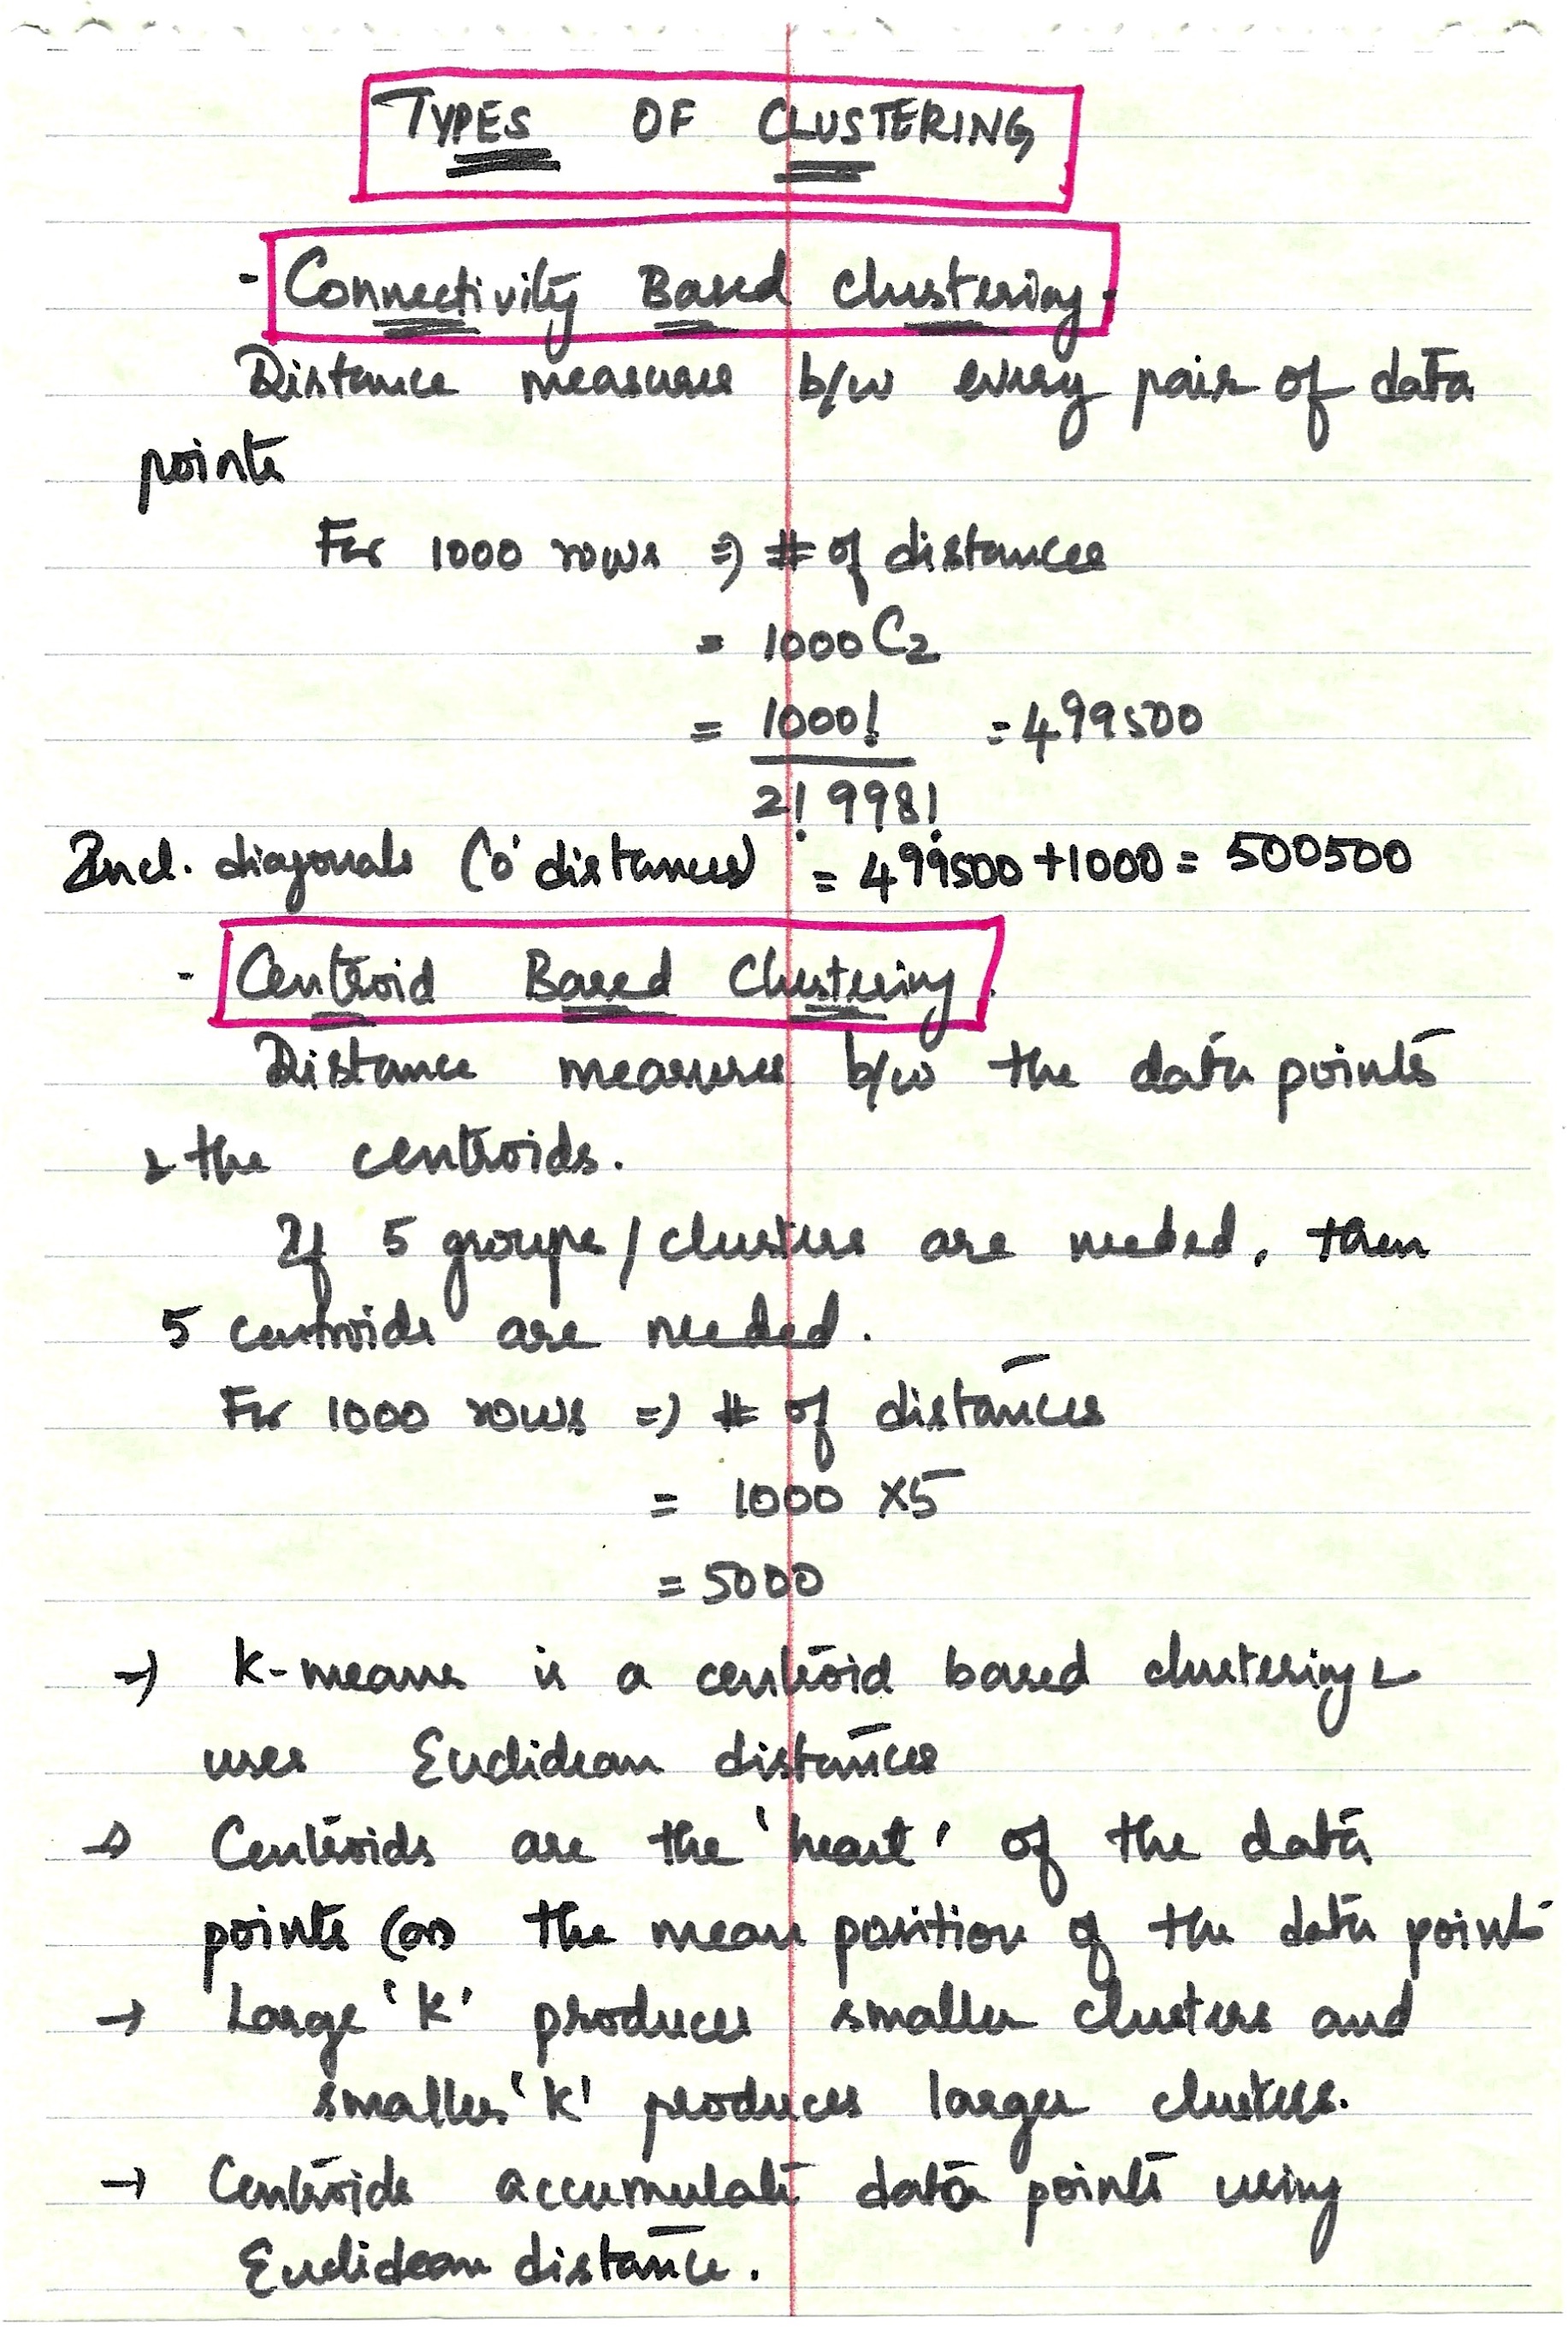 TYPES OF CLUSTERING
- Connectivity Based Clustering.
Distance measures b/w every pair of data
points
For 1000 rows => # of distances
= 1000C2
= 1000! = 499500
2! 998!
Incl. diagonals ('0' distances) = 499500 + 1000 = 500500
- Centroid Based Clustering.
Distance measures b/w the data points
& the centroids.
If 5 groups / clusters are needed, then
5 centroids are needed.
For 1000 rows => # of distances
= 1000 X5
= 5000
=> K-means is a centroid based clustering &
uses Euclidean distances
→ Centroids are the 'heart' of the data
points (or) the mean position of the data points
→ Large 'K' produces smaller clusters and
smaller 'K' produces larger clusters.
→ Centroids accumulate data points using
Euclidean distance.